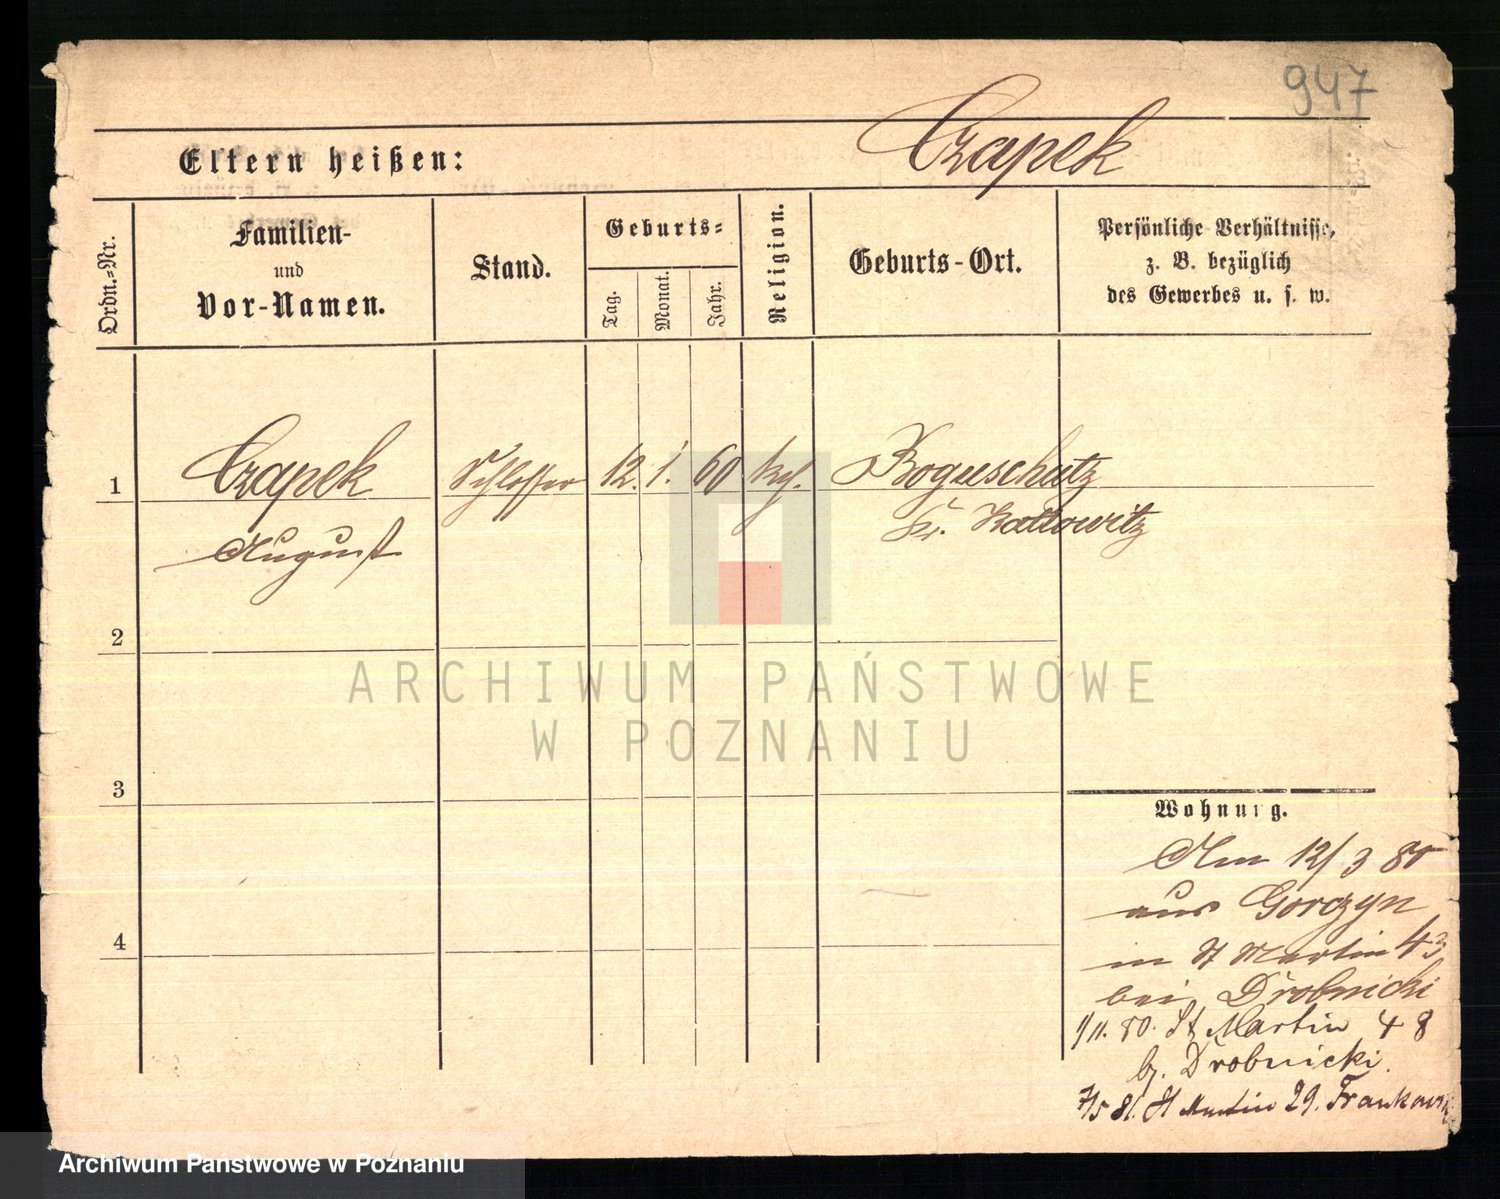 947
Czapek
Eltern heißen:
Ordn.-Nr.
Familien-
und
Vor-Namen.
Stand.
Geburts-
Tag.
Monat.
Jahr.
Religion.
Geburts-Ort.
Persönliche Verhältnisse,
z. B. bezüglich
des Gewerbes u. s. w.
1
Czapek
August
Schlosser
12.
1.
60
kth.
Boguschutz
Kr. Kattowitz
2
3
4
Wohnung.
Am 12/3 80
aus Gorczyn
in St Martin 43
bei Drobnicki
1/11. 80. St Martin 48
b. Drobnicki.
7/5 81. St Martin 29.
ARCHIWUM PAŃSTWOWE
W POZNANIU
Archiwum Państwowe w Poznaniu